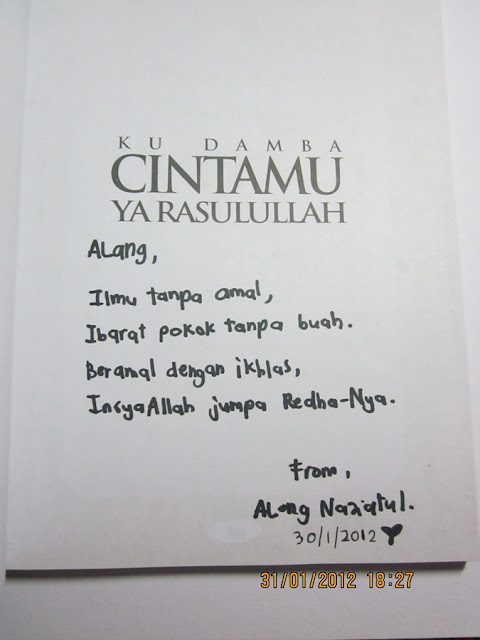 KU DAMBA
CINTAMU
YA RASULULLAH
ALang,
Ilmu tanpa amal,
Ibarat pokok tanpa buah.
Beramal dengan ikhlas,
InsyaAllah jumpa Redha-Nya.
From,
ALong Naziatul.
30/1/2012
31/01/2012 18:27